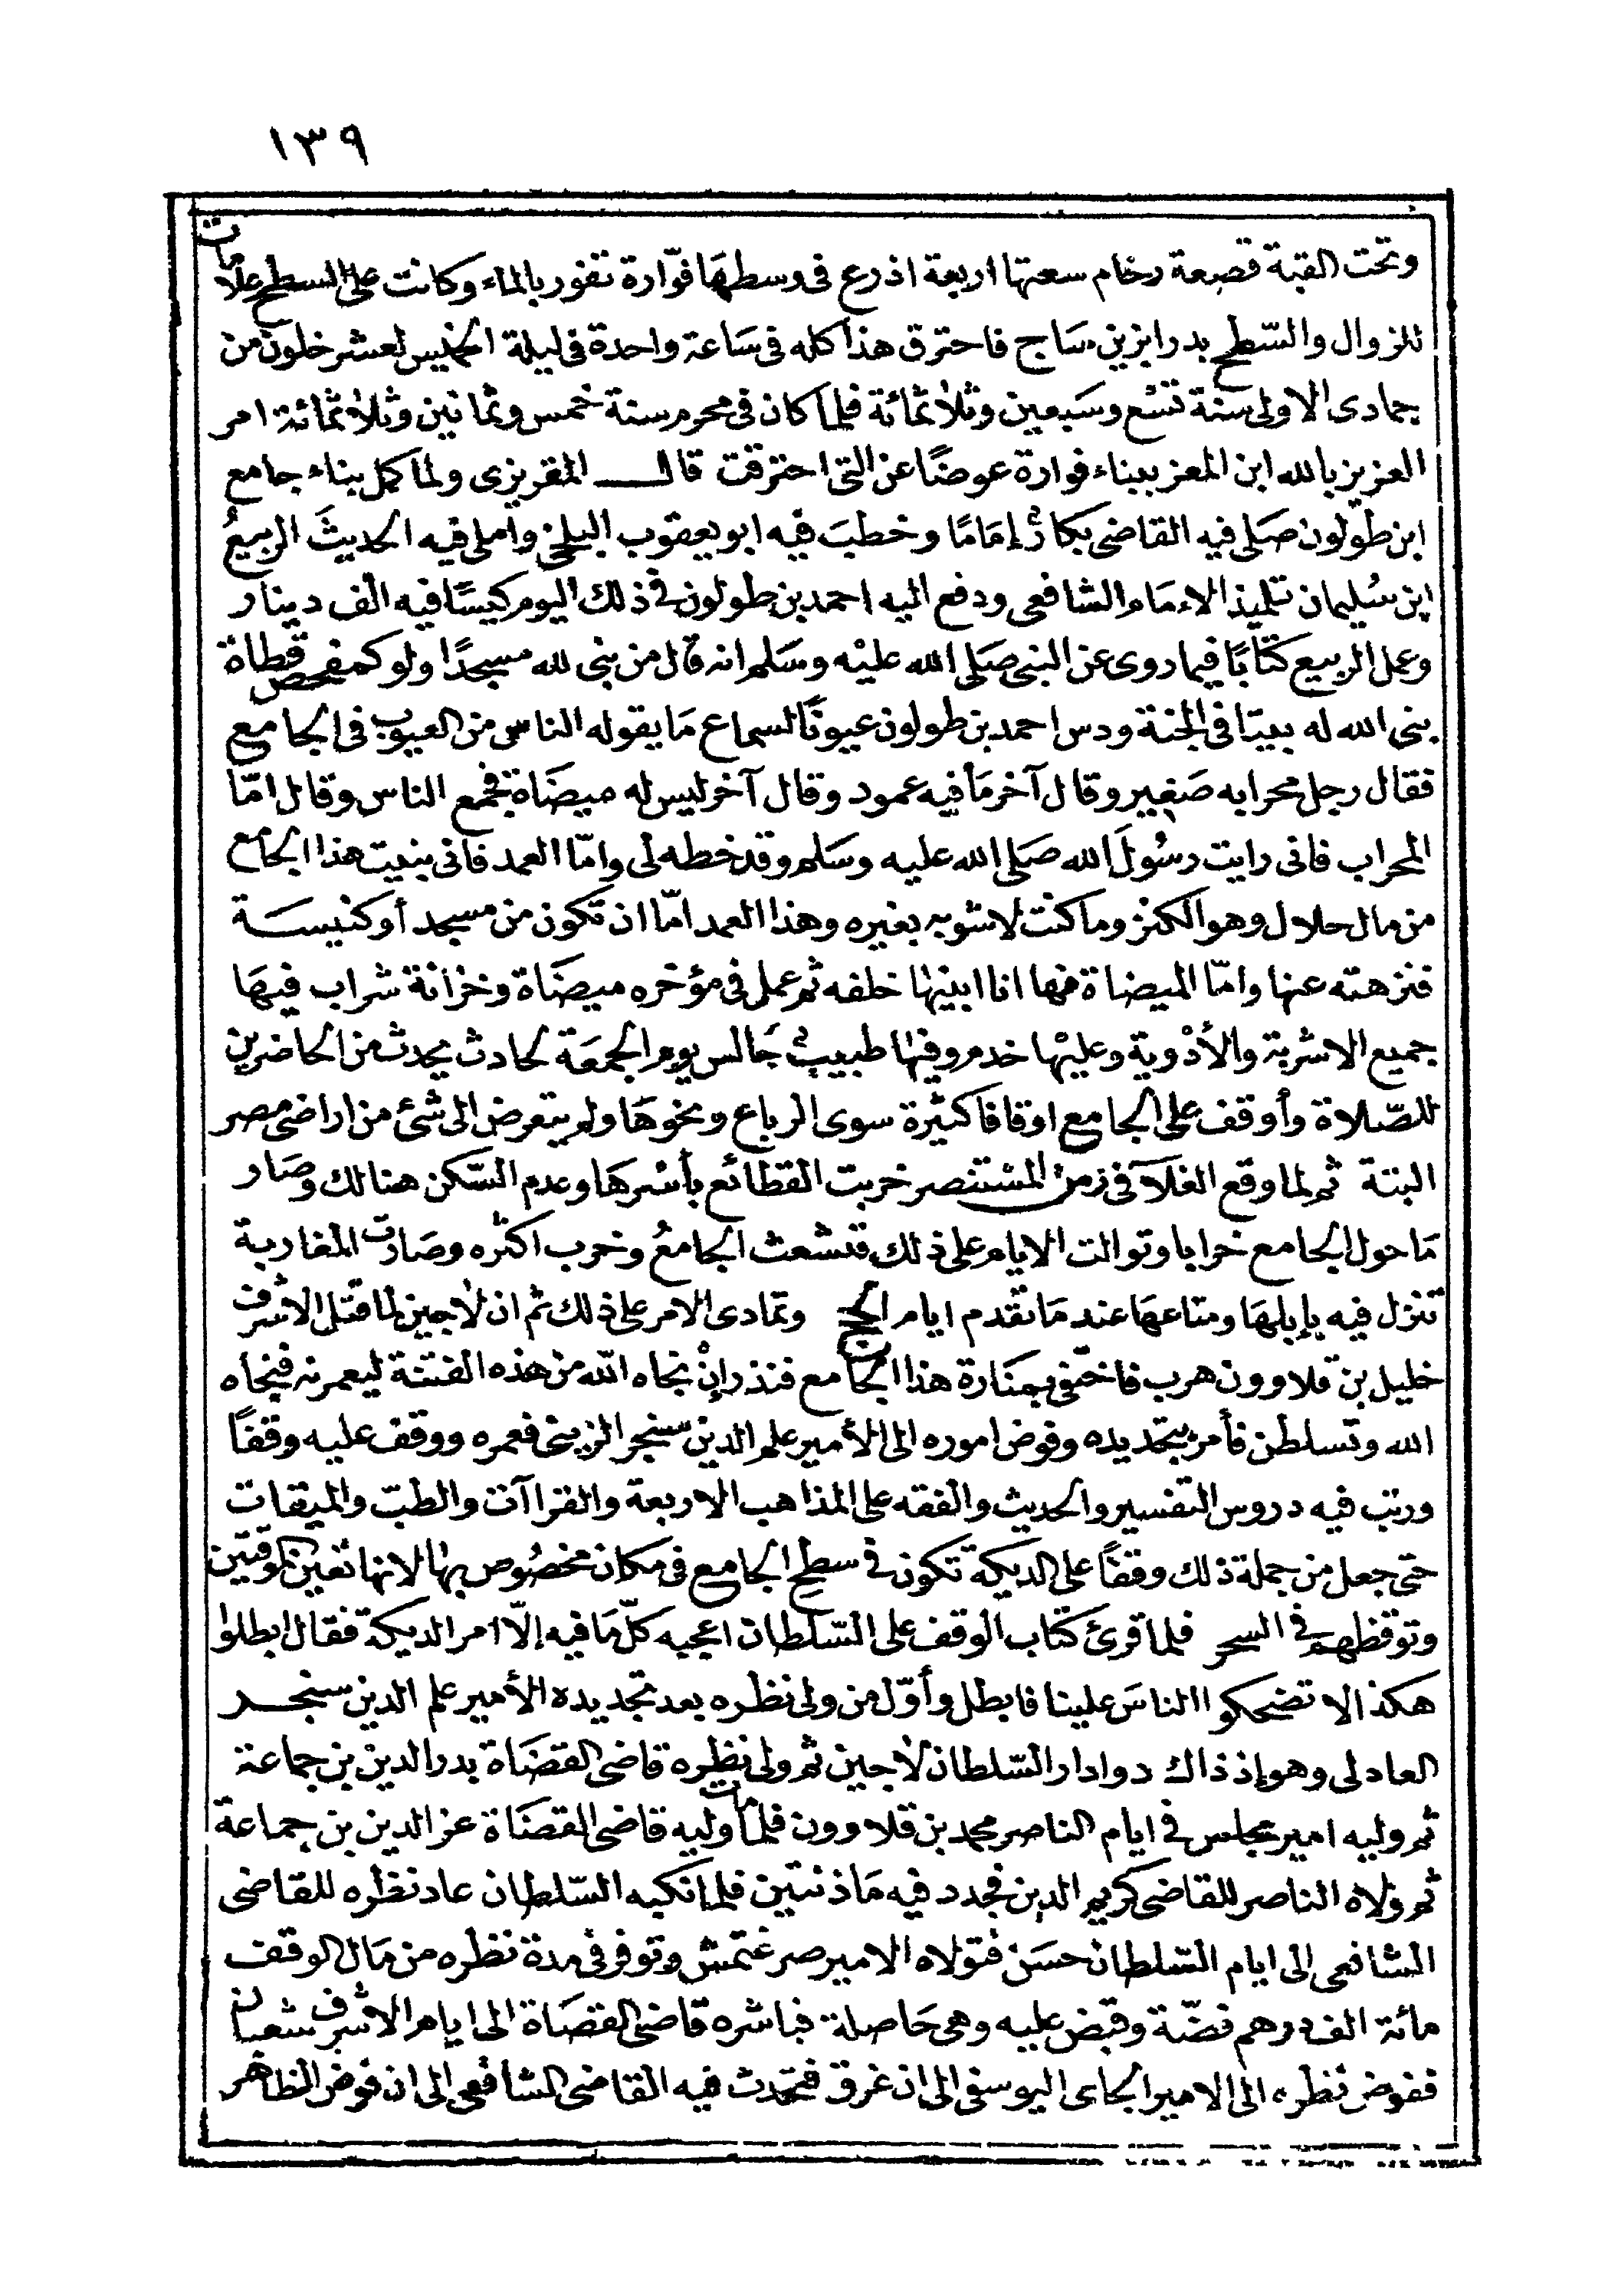 ١٣٩
وتحت القبة قصعة رخام سعتها اربعة اذرع فى وسطها فوّارة تفور بالماء وكانت على السطح علامات
للزوال والسّطح بدرابزين ساج فاحترق هذا كله فى ساعة واحدة فى ليلة الخميس لعشر خلون من
جمادى الاولى سنة تسع وسبعين وثلاثمائة فلما كان فى محرم سنة خمس وثمانين وثلاثمائة امر
العزيز بالله ابن المعز ببناء فوارة عوضًا عن التى احترقت قال المقريزى ولما كمل بناء جامع
ابن طولون صَلى فيه القاضى بكارٌ إمَامًا وخطبَ فيه ابو يعقوب البلخى واملى فيه الحديثَ الربيعُ
ابن سُليمان تلميذ الامَام الشافعى ودفع اليه احمد بن طولون فى ذلك اليوم كيسًا فيه الف دينار
وعمل الربيع كتابًا فيما روى عن النبى صَلى الله عليْه وسَلم انه قال من بنى لله مسجدًا ولو كمفحص قطاة
بنى الله له بيتا فى الجنة ودس احمد بن طولون عيونًا لسماع مَا يقوله الناس من العيوب فى الجامع
فقال رجل محرابه صَغير وقال آخر مَا فيه عمود وقال آخر ليس له ميضَاة فجمع الناس وقال امّا
المحراب فانى رايت رسُولَ الله صَلى الله عليه وسَلم وقد خطه لى وامّا العمد فانى بنيت هذا الجامع
من مال حلال وهو الكنز وما كنت لاشوبه بغيره وهذا العمد امّا ان تكون من مسجد أو كنيسَة
فنزهته عنها وامّا الميضاة فها انا ابنيها خلفه ثم عمل فى مؤخره ميضَاة وخزانة شراب فيهَا
جميع الاشربة والأدْوية وعليْها خدم وفيها طبيبٌ جَالس يوم الجمعَة لحادث يحدث من الحاضرين
للصّلاة وأوقف على الجامع اوقافا كثيرة سوى الرباع ونحوهَا ولم يتعرض الى شئ من اراضى مصر
البتة ثم لما وقع الغلآ فى زمن المستنصر خربت القطائع بأسْرهَا وعدم السّكن هنالك وصَار
مَا حول الجامع خرابا وتوالت الايام على ذلك فتشعث الجامعُ وخرب اكثره وصَارت المغاربة
تنزل فيه بإبلهَا ومتاعهَا عند مَا تقدم ايام الحج وتمادى الامر على ذلك ثم ان لاجين لما قتل الاشرف
خليل بن قلاوون هرب فاختفى بمنَارة هذا الجامع فنذر إنْ نجاه الله من هذه الفتنة ليعمرنه فنجاه
الله وتسلطن فأمر بتجديده وفوض اموره الى الأمير علم الدين سنجر الزينى فعمره ووقف عليه وقفًا
ورتب فيه دروس التفسير والحديث والفقه على المذاهب الاربعة والقراآت والطبّ والميقات
حتى جعل من جملة ذلك وقفًا على الديكة تكون فى سطح الجامع فى مكان مخصُوص بها لانها تعين الموقتين
وتوقظهم فى السحر فلما قرئ كتاب الوقف على السّلطان اعجبه كلّ مَا فيه إلّا امر الديكة فقال ابطلوا
هكذا لا تضحكوا الناسَ علينا فابطل وأوّل من ولى نظره بعد تجديده الأمير علم الدين سنجر
العادلى وهو إذ ذاك دوادار السّلطان لاجين ثم ولى نظره قاضى القضَاة بدر الديْن بن جماعة
ثم وليه امير مجلس فى ايام الناصر محمد بن قلاوون فلما مات وليه قاضى القضَاة عز الدين بن جماعة
ثم ولاه الناصر للقاضى كريم الدين فجدد فيه مَاذنتين فلما نكبه السّلطان عاد نظره للقاضى
الشافعى الى ايام السّلطان حسَن فتولاه الامير صرغتمش وتوفر فى مدة نظره من مَال الوقف
مائة الف درهم فضّة وقبض عليه وهى حَاصلة فباشره قاضى القضَاة الى ايام الاشرف شعبان
ففوض نظره الى الامير الجاى اليوسفى الى ان غرق فتحدث فيه القاضى الشافعى الى ان فوض الظاهر